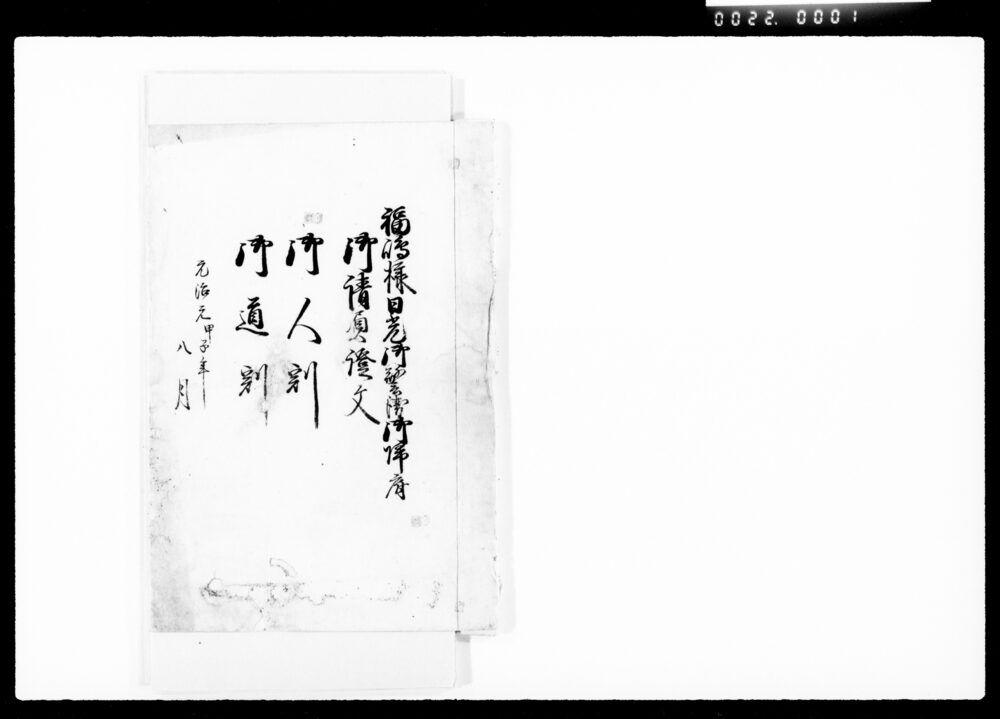 0022. 0001
福嶋様日光御警衛御帰府
御請負證文
御人割
御道割
元治元甲子年
八月